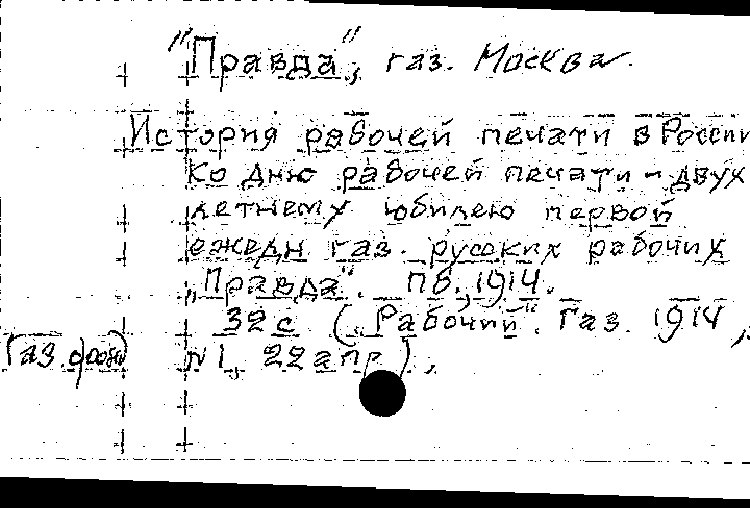 "Правда", газ. Москва.
История рабочей печати в России
Ко дню рабочей печати - двух
летнему юбилею первой
ежедн газ. русских рабочих
„Правда". Пб, 1914.
32 с („Рабочий". Газ. 1914,
Газ. фонд N 1, 22 апр),